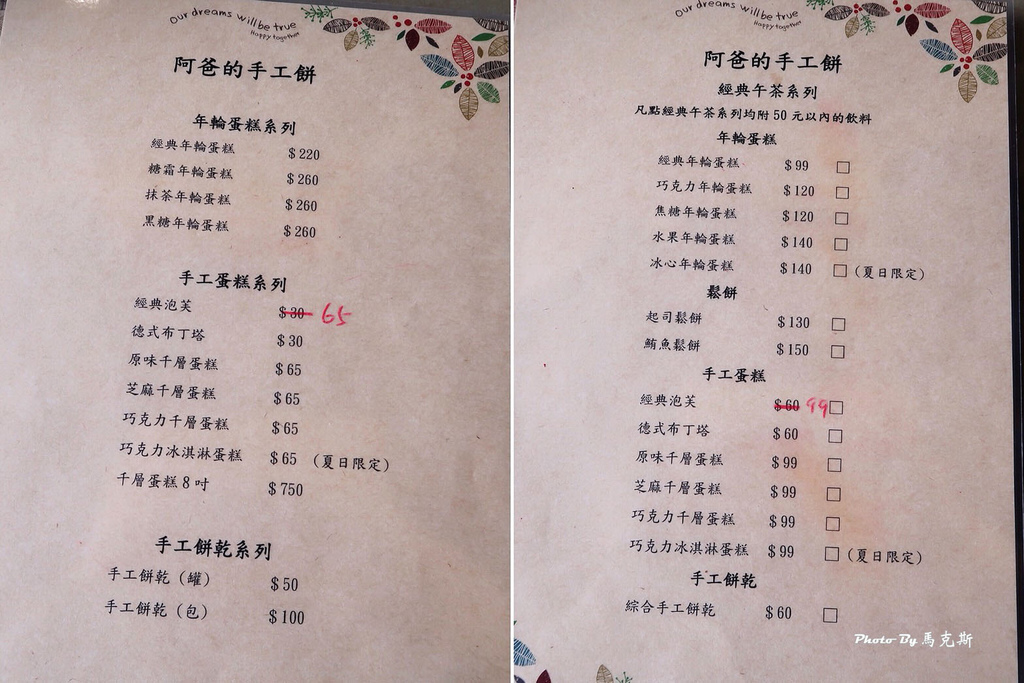 Our dreams will be true
Happy together
阿爸的手工餅
年輪蛋糕系列
經典年輪蛋糕 $220
糖霜年輪蛋糕 $260
抹茶年輪蛋糕 $260
黑糖年輪蛋糕 $260
手工蛋糕系列
經典泡芙 $30 65
德式布丁塔 $30
原味千層蛋糕 $65
芝麻千層蛋糕 $65
巧克力千層蛋糕 $65
巧克力冰淇淋蛋糕 $65 (夏日限定)
千層蛋糕8吋 $750
手工餅乾系列
手工餅乾(罐) $50
手工餅乾(包) $100
Our dreams will be true
Happy together
阿爸的手工餅
經典午茶系列
凡點經典午茶系列均附50元以內的飲料
年輪蛋糕
經典年輪蛋糕 $99 □
巧克力年輪蛋糕 $120 □
焦糖年輪蛋糕 $120 □
水果年輪蛋糕 $140 □
冰心年輪蛋糕 $140 □(夏日限定)
鬆餅
起司鬆餅 $130 □
鮪魚鬆餅 $150 □
手工蛋糕
經典泡芙 $60 99 □
德式布丁塔 $60 □
原味千層蛋糕 $99 □
芝麻千層蛋糕 $99 □
巧克力千層蛋糕 $99 □
巧克力冰淇淋蛋糕 $99 □(夏日限定)
手工餅乾
綜合手工餅乾 $60 □
Photo By 馬克斯